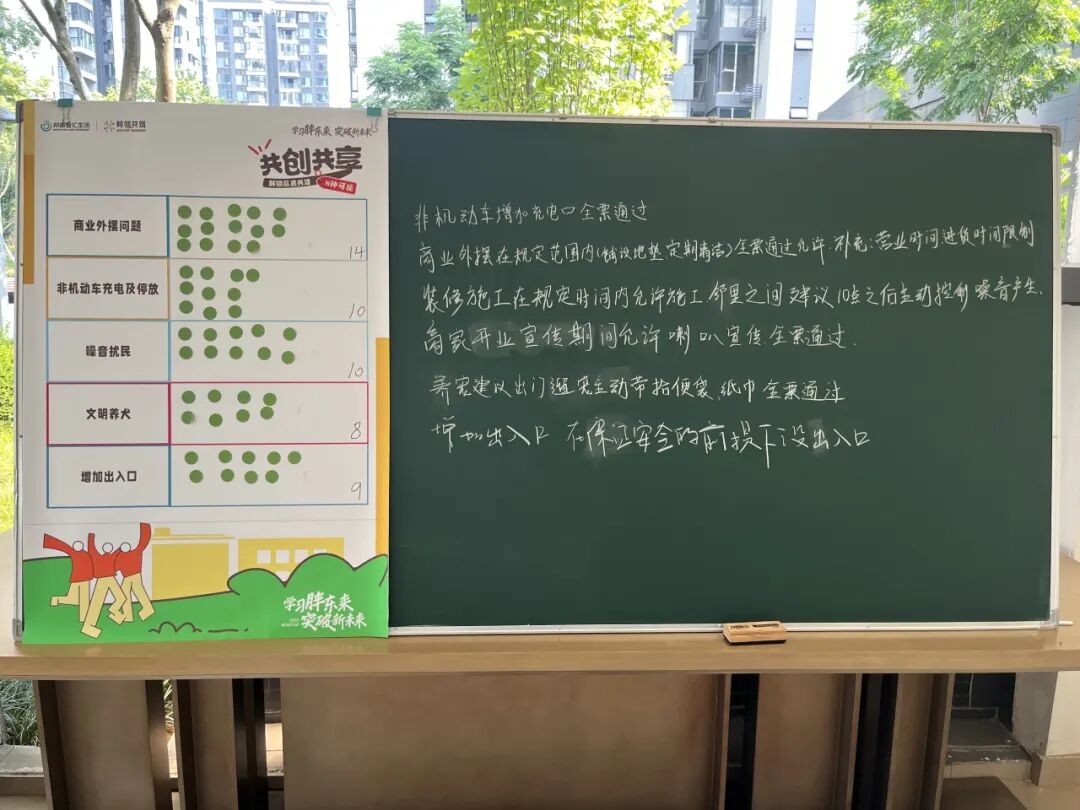 学习胖东来 突破新未来
共创共享
解锁品质共建 N种可能
商业外摆问题
14
非机动车充电及停放
10
噪音扰民
10
文明养犬
8
增加出入口
9
学习胖东来
突破新未来
非机动车增加充电口全票通过
商业外摆在规定范围内(铺设地垫定期清洁)全票通过允许.补充:营业时间进货时间限制
装修施工在规定时间内允许施工 邻里之间建议10点之后主动控制噪音产生.
商家开业宣传期间允许喇叭宣传.全票通过.
养宠建议出门遛宠主动带拾便袋.纸巾全票通过
增加出入口 在保证安全的前提下设出入口